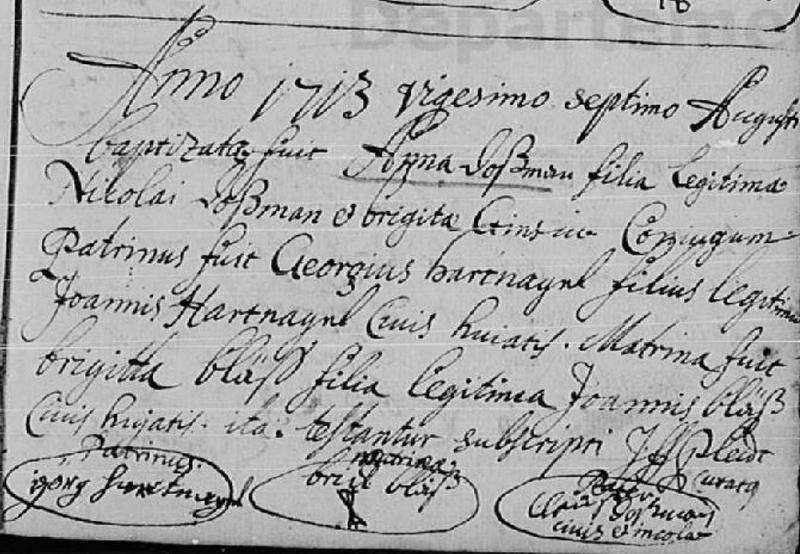 18
Anno 1713 vigesimo septimo Augusti
baptizata fuit Anna Doßman filia legitima
Nicolai Doßman & brigita Coniugum
Patrinus fuit Georgius hartnagel filius legitimus
Joannis Hartnagel Civis huiatis. Matrina fuit
brigitta bläß filia legitima Joannis bläß
Civis hujatis. ita testantur subscripti
Patrinus. matrina Pater
georg bläß
civis & incola